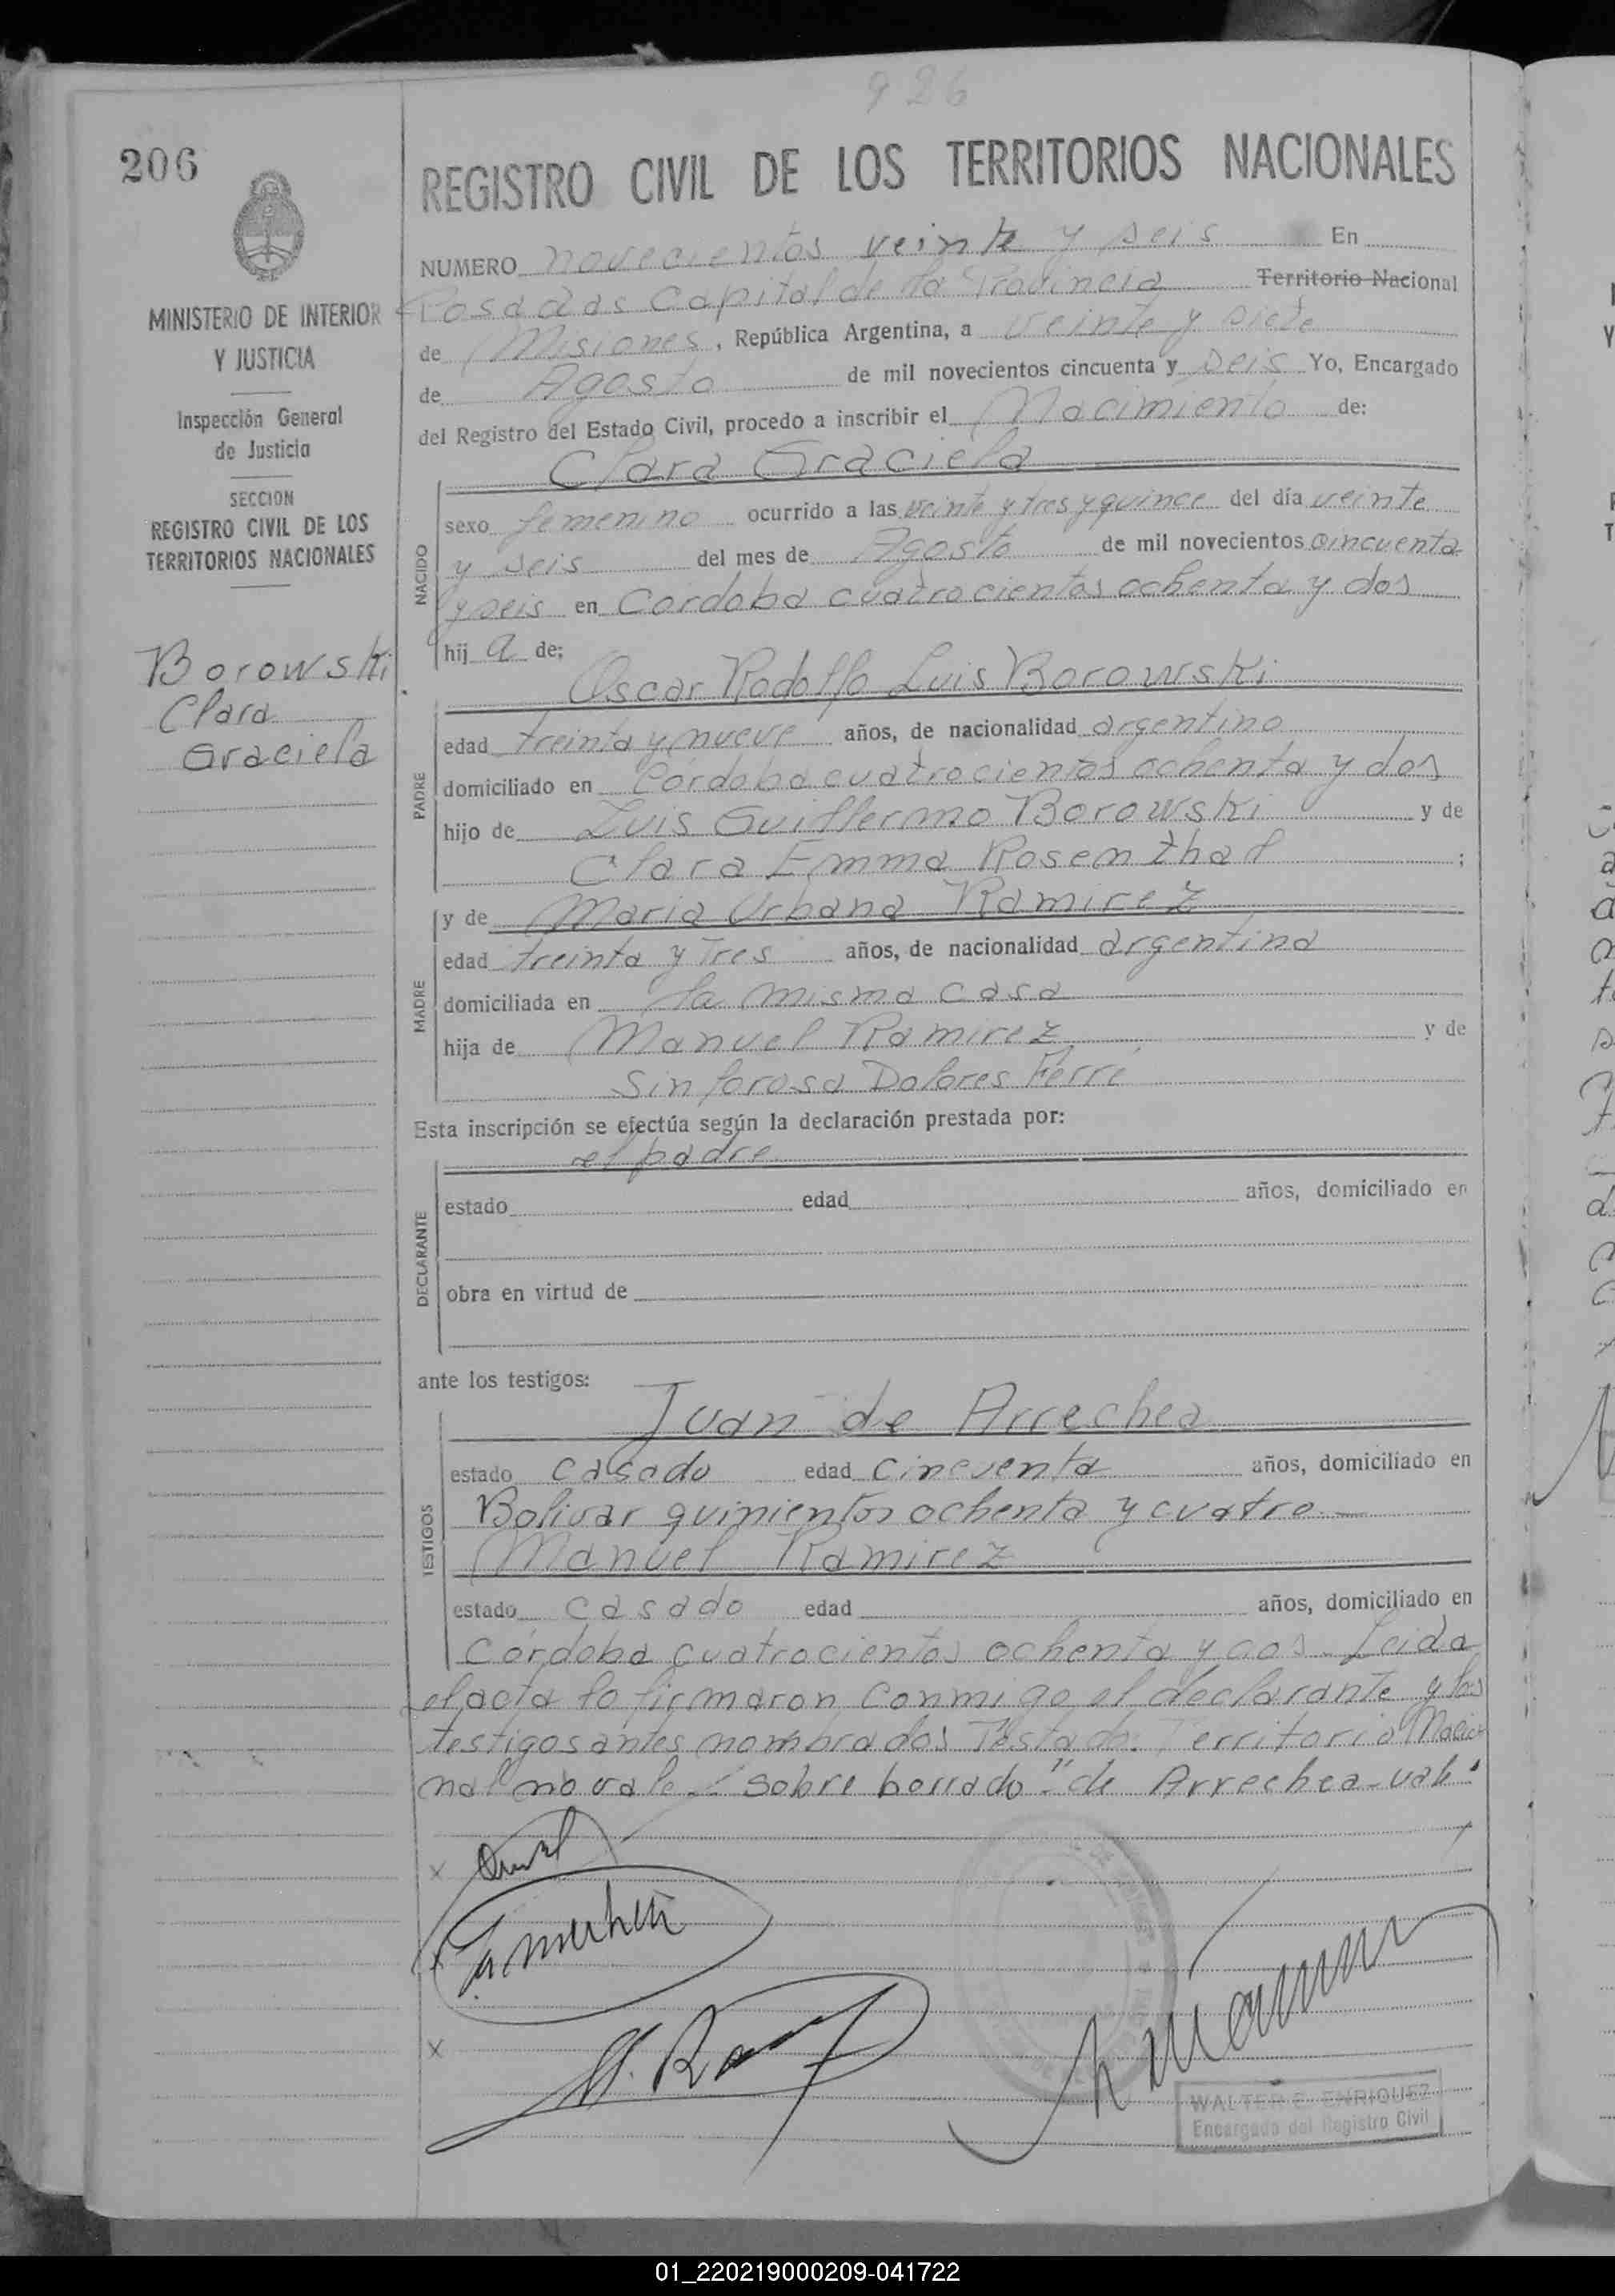 926
206
REGISTRO CIVIL DE LOS TERRITORIOS NACIONALES
NUMERO novecientos veinte y seis En
Posadas Capital de la Provincia Territorio Nacional
de Misiones, República Argentina, a veinte y siete
de Agosto de mil novecientos cincuenta y seis Yo, Encargado
del Registro del Estado Civil, procedo a inscribir el Nacimiento de:
MINISTERIO DE INTERIOR
Y JUSTICIA
Inspección General
de Justicia
SECCION
REGISTRO CIVIL DE LOS
TERRITORIOS NACIONALES
Borowski
Clara
Graciela
Clara Graciela
NACIDO
sexo femenino ocurrido a las veinte y tres y quince del día veinte
y seis del mes de Agosto de mil novecientos cincuenta
y seis en Córdoba cuatrocientos ochenta y dos
hij a de:
Oscar Rodolfo Luis Borowski
PADRE
edad treinta y nueve años, de nacionalidad argentino
domiciliado en Córdoba cuatrocientos ochenta y dos
hijo de Luis Guillermo Borowski y de
Clara Emma Rosenthal ;
y de Maria Urbana Ramirez
MADRE
edad treinta y tres años, de nacionalidad argentina
domiciliada en la misma casa
hija de Manuel Ramirez y de
Sinforosa Dolores Ferré
Esta inscripción se efectúa según la declaración prestada por:
el padre
DECLARANTE
estado edad años, domiciliado en
obra en virtud de
ante los testigos:
Juan de Arrechea
TESTIGOS
estado casado edad cincuenta años, domiciliado en
Bolivar quinientos ochenta y cuatro
Manuel Ramirez
estado casado edad años, domiciliado en
Córdoba cuatrocientos ochenta y dos. Leida
el acta la firmaron conmigo el declarante y los
testigos antes nombrados Testado: Territorio Nacio
nal no vale. sobre borrado "de Arrechea-vale"
x
x
M. Ram
WALTER E. ENRIQUEZ
Encargado del Registro Civil
01_220219000209-041722